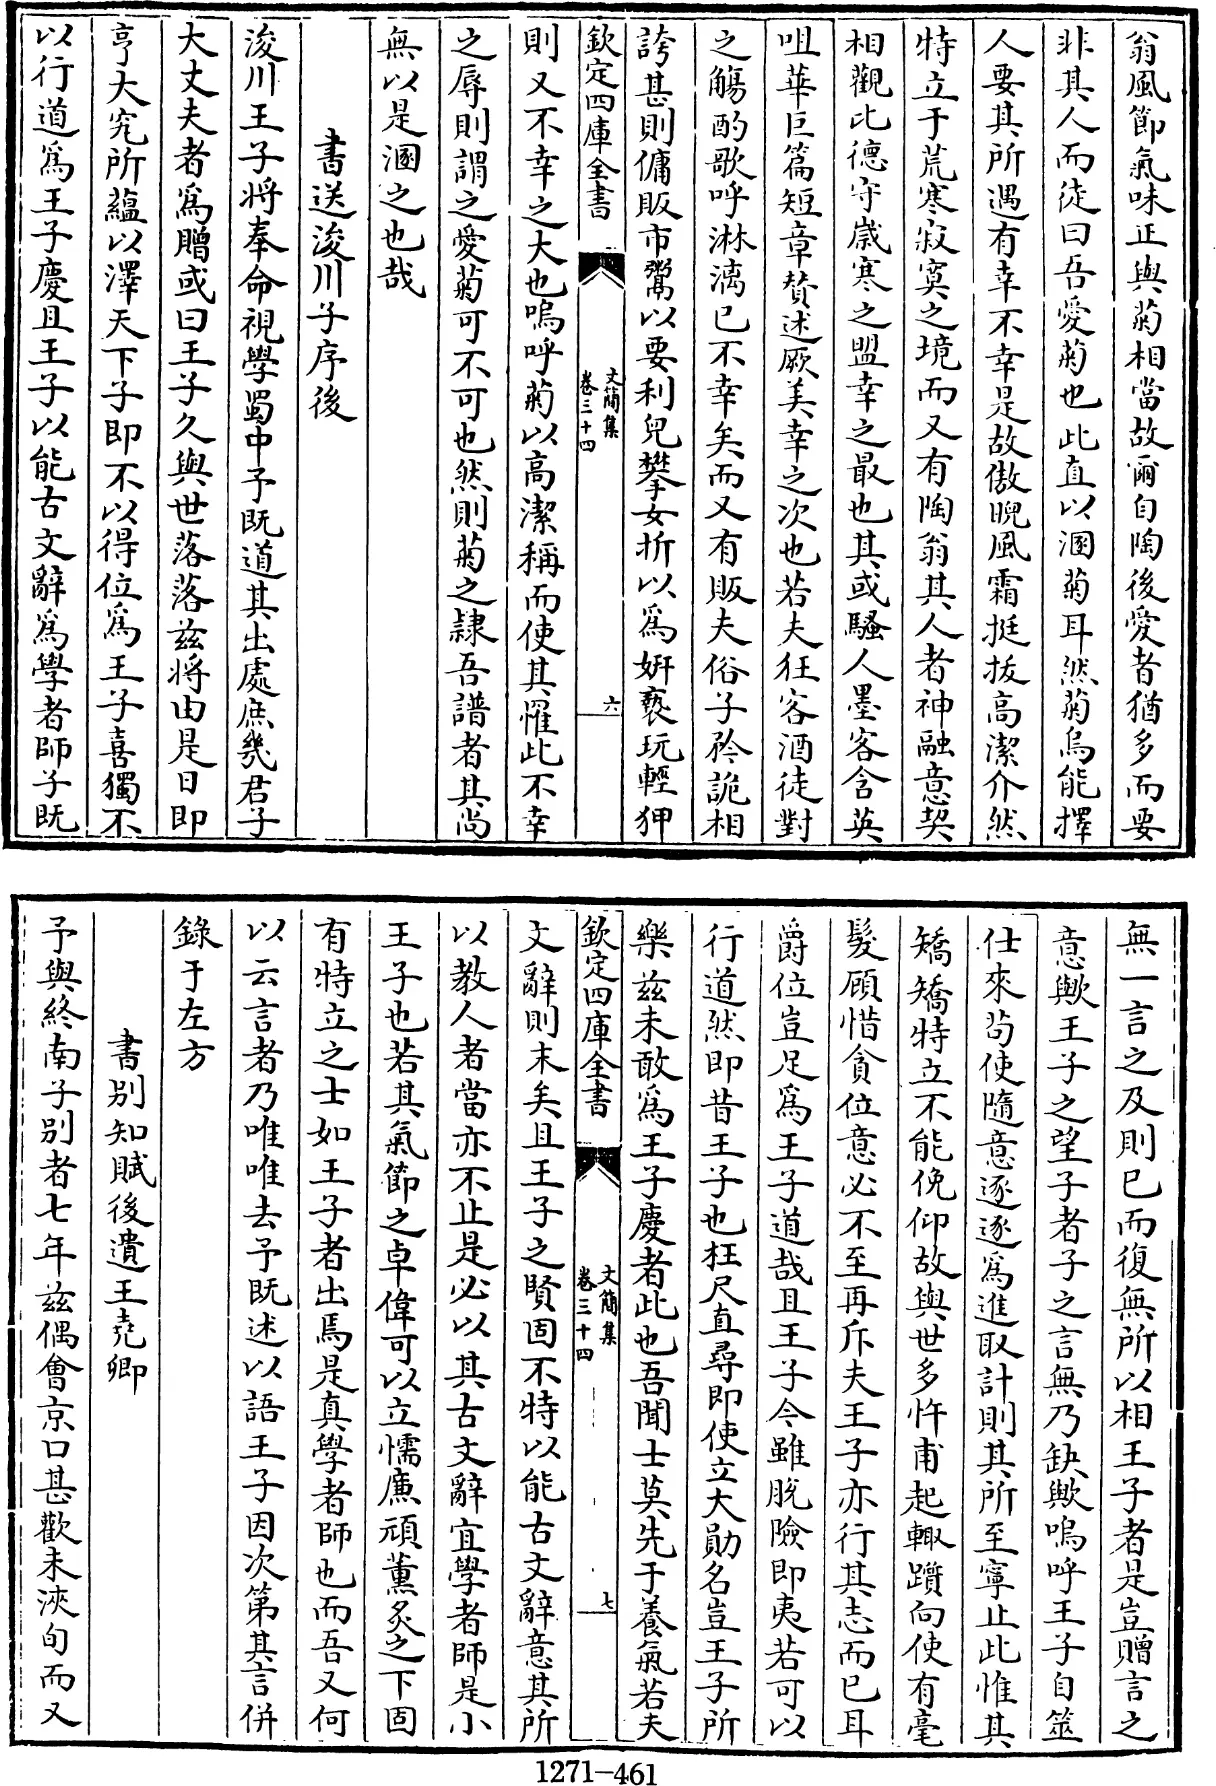 翁風節氣味正與菊相當故爾自陶後愛者猶多而要
非其人而徒曰吾愛菊也此直以溷菊耳然菊烏能擇
人要其所遇有幸不幸是故傲睨風霜挺拔高潔介然
特立于荒寒寂寞之境而又有陶翁其人者神融意契
相觀比德守歲寒之盟幸之最也其或騷人墨客含英
咀華巨篇短章贊述厥美幸之次也若夫狂客酒徒對
之觴酌歌呼淋漓已不幸矣而又有販夫俗子矜詭相
誇甚則傭販市鬻以要利兒攀女折以為妍褻玩輕狎
欽定四庫全書
文簡集
卷三十四
六
則又不幸之大也嗚呼菊以高潔稱而使其罹此不幸
之辱則謂之愛菊可不可也然則菊之隷吾譜者其尚
無以是溷之也哉
書送浚川子序後
浚川王子將奉命視學蜀中予既道其出處庶幾君子
大丈夫者為贈或曰王子久與世落落兹將由是日即
亨大究所蘊以澤天下子即不以得位為王子喜獨不
以行道為王子慶且王子以能古文辭為學者師子既
無一言之及則已而復無所以相王子者是豈贈言之
意歟王子之望子者子之言無乃缺歟嗚呼王子自筮
仕來茍使隨意逐逐為進取計則其所至寧止此惟其
矯矯特立不能俛仰故與世多忤甫起輙躓向使有毫
髮顧惜貪位意必不至再斥夫王子亦行其志而已耳
爵位豈足為王子道哉且王子今雖脫險即夷若可以
行道然即昔王子也枉尺直尋即使立大勛名豈王子所
樂兹未敢為王子慶者此也吾聞士莫先于養氣若夫
欽定四庫全書
文簡集
卷三十四
七
文辭則末矣且王子之賢固不特以能古文辭意其所
以教人者當亦不止是必以其古文辭宜學者師是小
王子也若其氣節之卓偉可以立懦廉頑薰炙之下固
有特立之士如王子者出焉是真學者師也而吾又何
以云言者乃唯唯去予既述以語王子因次第其言併
錄于左方
書别知賦後遺王堯卿
予與終南子别者七年兹偶會京口甚歡未浹旬而又
1271—461